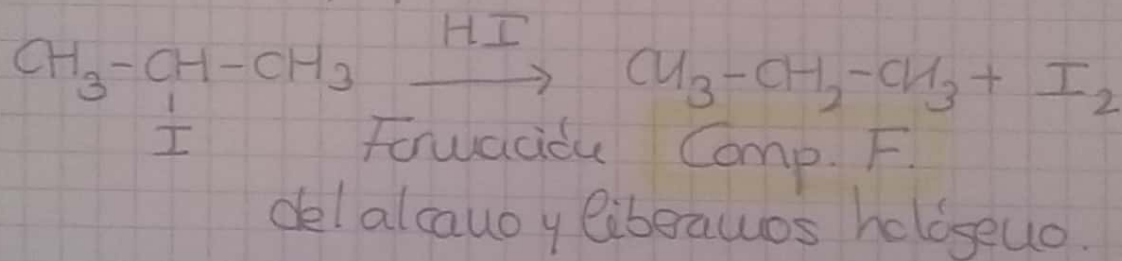 HI
CH₃-CH-CH₃ ⟶ CH₃-CH₂-CH₃ + I₂
I Formación Comp. F.
del alcano y liberamos halógeno.